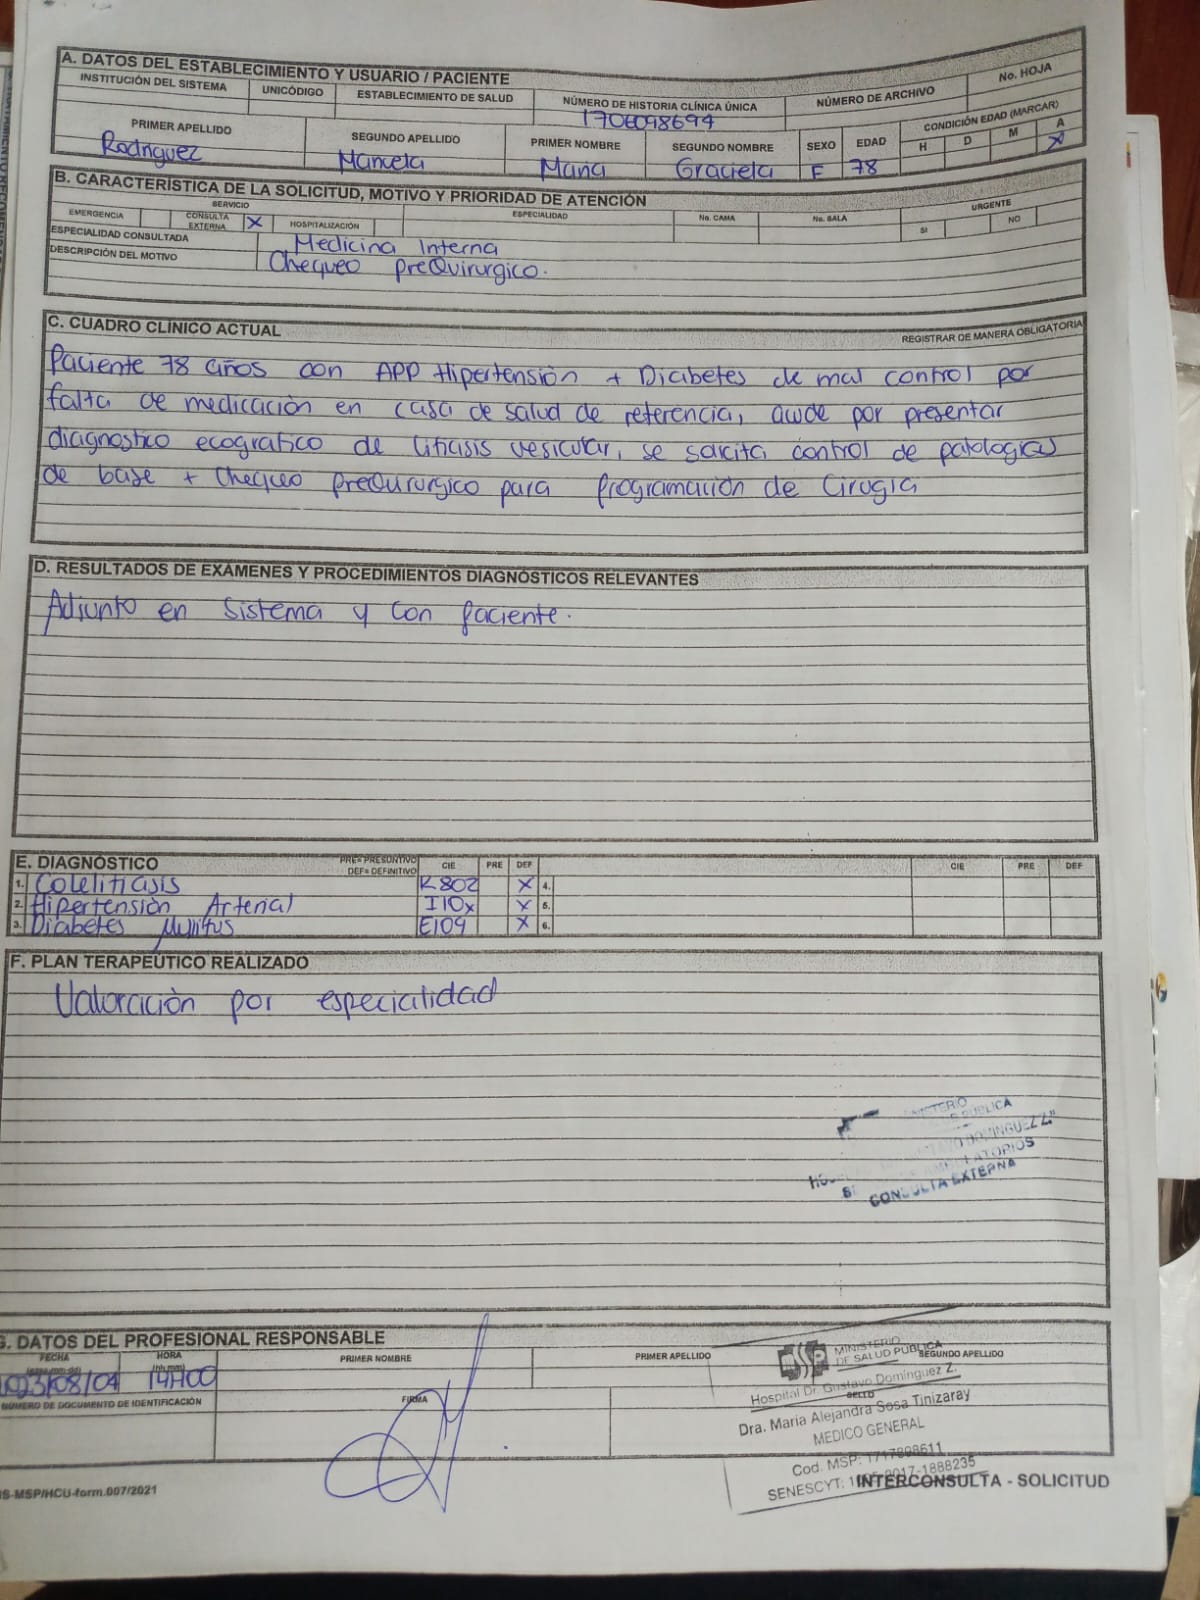 A. DATOS DEL ESTABLECIMIENTO Y USUARIO / PACIENTE
INSTITUCIÓN DEL SISTEMA UNICÓDIGO ESTABLECIMIENTO DE SALUD NÚMERO DE HISTORIA CLÍNICA ÚNICA NÚMERO DE ARCHIVO No. HOJA
1706098694
PRIMER APELLIDO SEGUNDO APELLIDO PRIMER NOMBRE SEGUNDO NOMBRE SEXO EDAD CONDICIÓN EDAD (MARCAR)
H D M A
Rodriguez Mancela Maria Graciela F 78 X
B. CARACTERÍSTICA DE LA SOLICITUD, MOTIVO Y PRIORIDAD DE ATENCIÓN
SERVICIO ESPECIALIDAD No. CAMA No. SALA URGENTE
EMERGENCIA CONSULTA EXTERNA X HOSPITALIZACIÓN SI NO
ESPECIALIDAD CONSULTADA Medicina Interna
DESCRIPCIÓN DEL MOTIVO Chequeo preQuirurgico.
C. CUADRO CLÍNICO ACTUAL REGISTRAR DE MANERA OBLIGATORIA
Paciente 78 años con APP Hipertensión + Diabetes de mal control por
falta de medicación en casa de salud de referencia, acude por presentar
diagnostico ecografico de litiasis vesicular, se solicita control de patologias
de base + Chequeo preQururgico para programación de Cirugia
D. RESULTADOS DE EXÁMENES Y PROCEDIMIENTOS DIAGNÓSTICOS RELEVANTES
Adjunto en sistema y con paciente.
E. DIAGNÓSTICO PRE= PRESUNTIVO DEF= DEFINITIVO CIE PRE DEF CIE PRE DEF
1. Colelitiasis K802 X 4.
2. Hipertensión Arterial I10x X 5.
3. Diabetes Mellitus E109 X 6.
F. PLAN TERAPEÚTICO REALIZADO
Valoración por especialidad
CONSULTA EXTERNA
G. DATOS DEL PROFESIONAL RESPONSABLE
FECHA HORA PRIMER NOMBRE PRIMER APELLIDO SEGUNDO APELLIDO
2023/08/04 14H00
MSP MINISTERIO DE SALUD PUBLICA
Hospital Dr. Gustavo Dominguez Z.
NÚMERO DE DOCUMENTO DE IDENTIFICACIÓN FIRMA SELLO
Dra. Maria Alejandra Sosa Tinizaray
MEDICO GENERAL
Cod. MSP: 1717898611
SENESCYT:
-MSP/HCU-form.007/2021 INTERCONSULTA - SOLICITUD